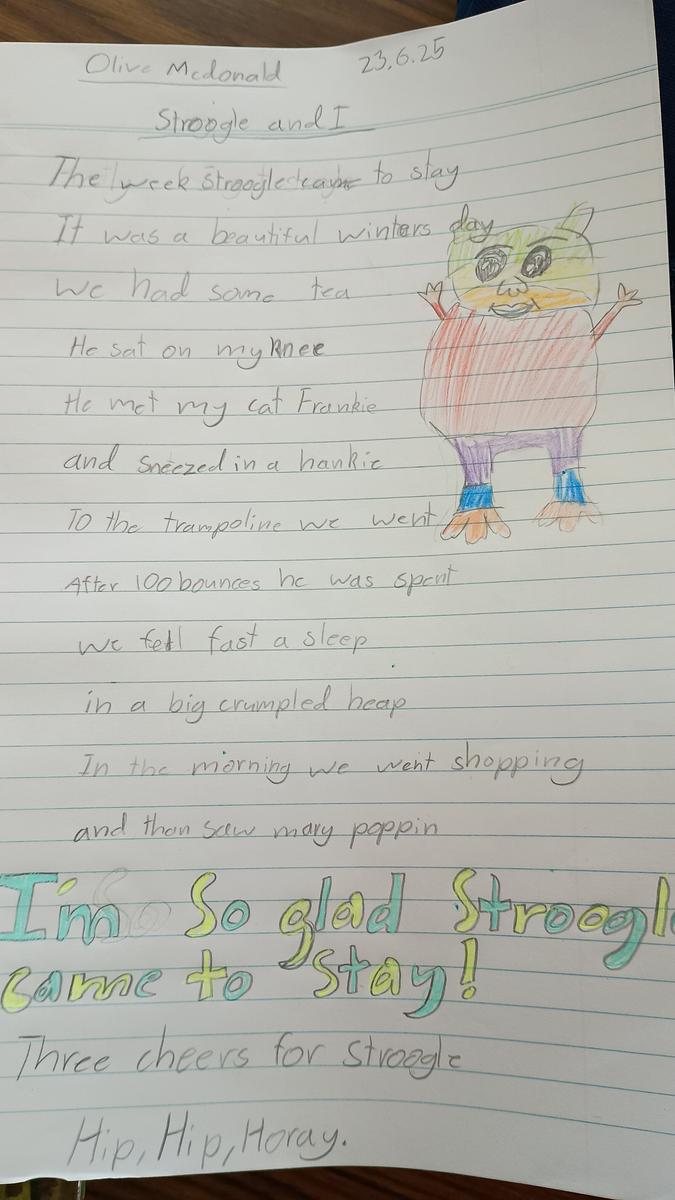 Olive Mcdonald 23.6.25
Stroogle and I
The week Stroogle came to stay
It was a beautiful winters day
We had some tea
He sat on my knee
He met my cat Frankie
and sneezed in a hankie
To the trampoline we went
After 100 bounces he was spent
we fell fast a sleep
in a big crumpled heap
In the morning we went shopping
and then saw mary poppin
I'm So glad Stroogle
came to Stay!
Three cheers for stroogle
Hip, Hip, Horay.